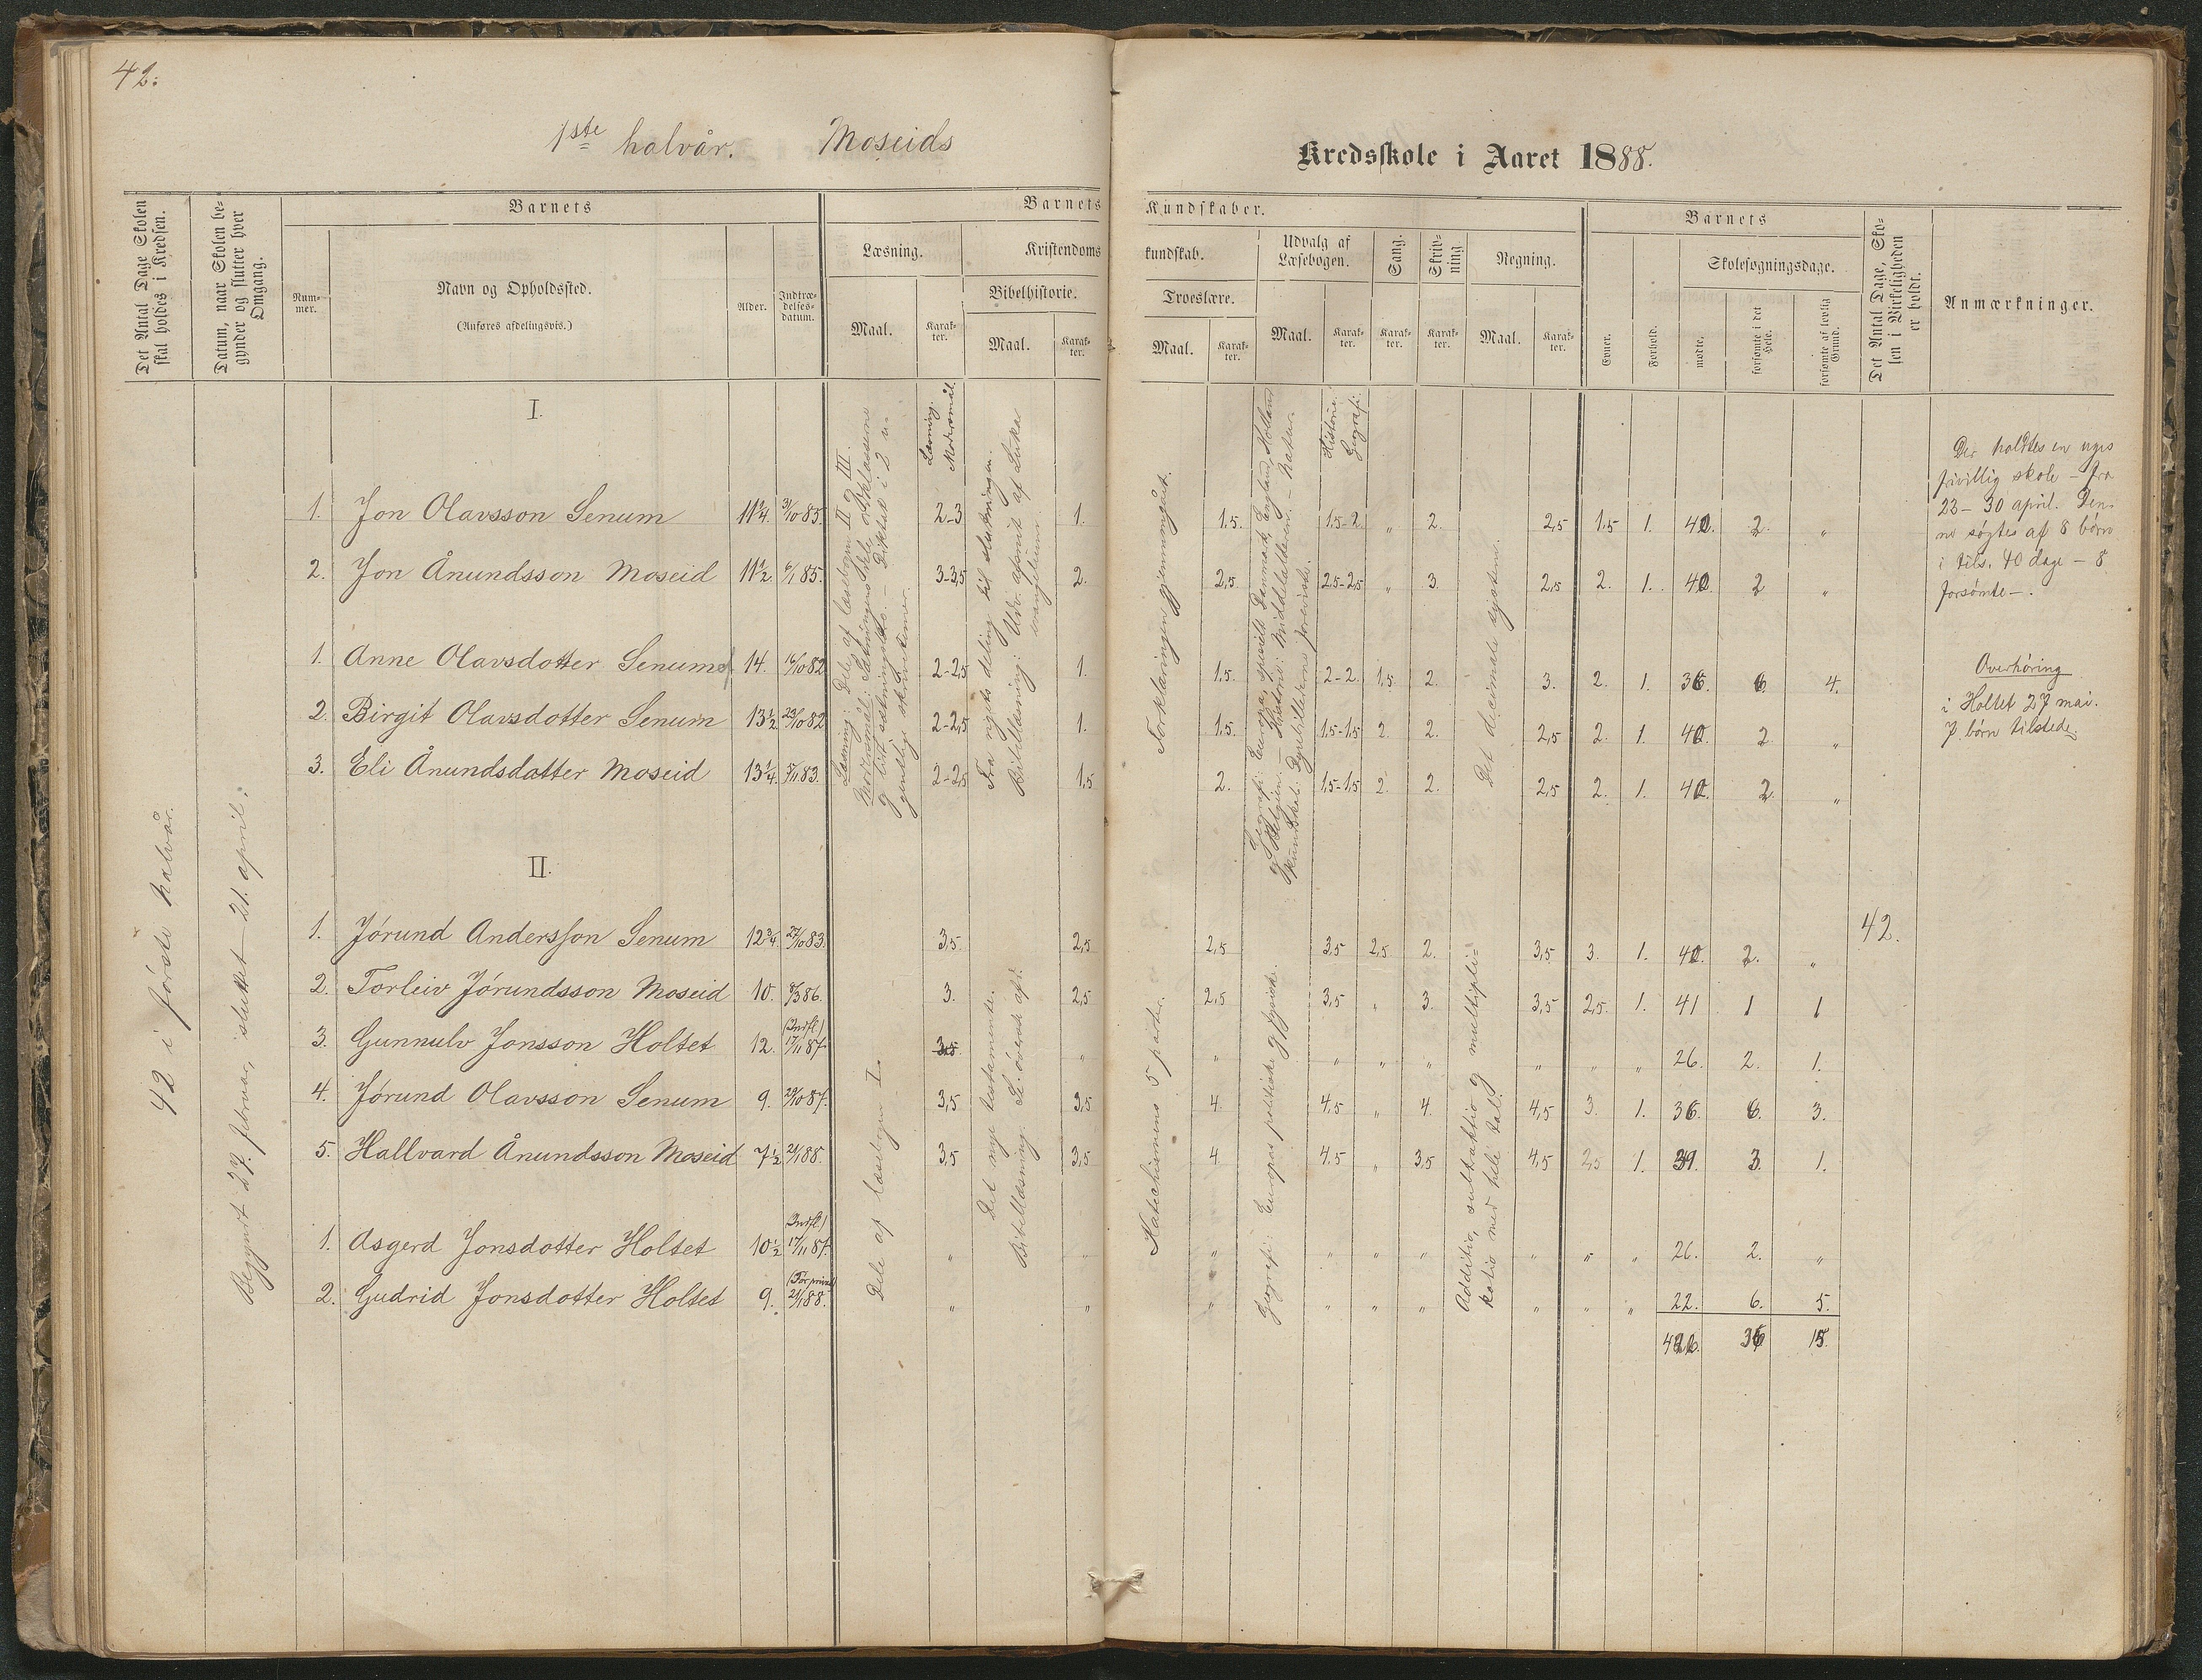 42.
1ste halvår. Moseids
Kredsskole i Aaret 1888.
Det Antal Dage Skolen skal holdes i Kredsen.
Datum, naar Skolen begynder og slutter hver Omgang.
Barnets
Nummer.
Navn og Opholdssted.
(Anføres afdelingsvis.)
Alder.
Indtrædelsesdatum.
Barnets Kundskaber.
Læsning.
Maal.
Karakter.
Kristendomskundskab.
Bibelhistorie.
Maal.
Karakter.
Troeslære.
Maal.
Karakter.
Udvalg af Læsebogen.
Maal.
Karakter.
Sang.
Karakter.
Skrivning
Karakter.
Regning.
Maal.
Karakter.
Barnets
Evner.
Forhold.
Skolesøgningsdage.
mødte.
forsømte i det Hele.
forsømte af lovlig Grund.
Det Antal Dage, Skolen i Virkeligheden er holdt.
Anmærkninger.
42 i første halvår.
Begyndt 27. februar, sluttet 21. april.
I.
Læsning: Dele af læsebogen II og III.
Læsning. Modersmål.
Fra rigets deling til slutningen.
Bibellæsning: Udv. afsnit af Lukas evangelium
Forklaringen gjennemgået.
Historie. Geografi.
Det decimale system.
1. Jon Olavsson Senum 11 1/4. 31/10 85. 2-3 1. 1.5. 1.5-2. " 2. 2,5 1.5 1. 40. 2. "
2. Jon Ånundsson Moseid 11 1/2. 6/1 85. 3-3,5 2. 2,5. 2.5-2,5 " 3. 2,5 2. 1. 40. 2 "
1. Anne Olavsdotter Senum 14. 16/10 82 2-2,5 1. 1.5. 2-2. 1.5 2. 3. 2. 1. 36. 6. 4.
2. Birgit Olavsdotter Senum 13 1/2. 23/10 82 2-2,5 1. 1.5. 1.5-1.5 2. 2. 2,5 2. 1. 40. 2 "
3. Eli Ånundsdotter Moseid 13 1/4. 5/11 83. 2-2,5 1,5 2. 1.5-1.5 2. 2. 2,5 2. 1. 40. 2. "
II.
Dele af læsebogen I.
Det nye testamente.
Katechismens 5 parter.
Geografi: Europas politiske og fysiske.
Additio, subtraktio og multiplikatio med hele tal.
1. Jørund Andersson Senum 12 3/4. 27/10 83. 3,5 2,5 2,5 3,5 2,5 2. 3,5 3. 1. 40. 2. "
2. Torleiv Jørundsson Moseid 10. 8/3 86. 3. 2,5 2,5 3,5 " 3. 3,5 2,5. 1. 41 1 1
3. Gunnulv Jonsson Holtet 12. (Indfl.) 17/11 87. " " " " " " " " 26. 2. 1.
4. Jørund Olavsson Senum 9. 29/10 87. 3,5 3,5 4. 4,5 " 4. 4,5 3. 1. 36. 6. 3.
5. Hallvard Ånundsson Moseid 7 1/2 21/1 88. 3,5 3,5 4. 4.5 " 3,5 4,5 3,5 1. 39. 3. 1.
42.
1. Asgerd Jonsdotter Holtet 10 1/2 (Indfl.) 17/11 87. " " " " " " " " 26. 2. "
2. Gudrid Jonsdotter Holtet 9. 21/1 88. " " " " " " " " " 22. 6. 5.
36 15.
Der holdtes en uges
frivillig skole – fra
23–30 april. Den-
ne søgtes af 8 børn
i tils. 40 dage – 8
forsømte –.
Overhøring
i Holtet 27 mai.
7 børn tilstede.